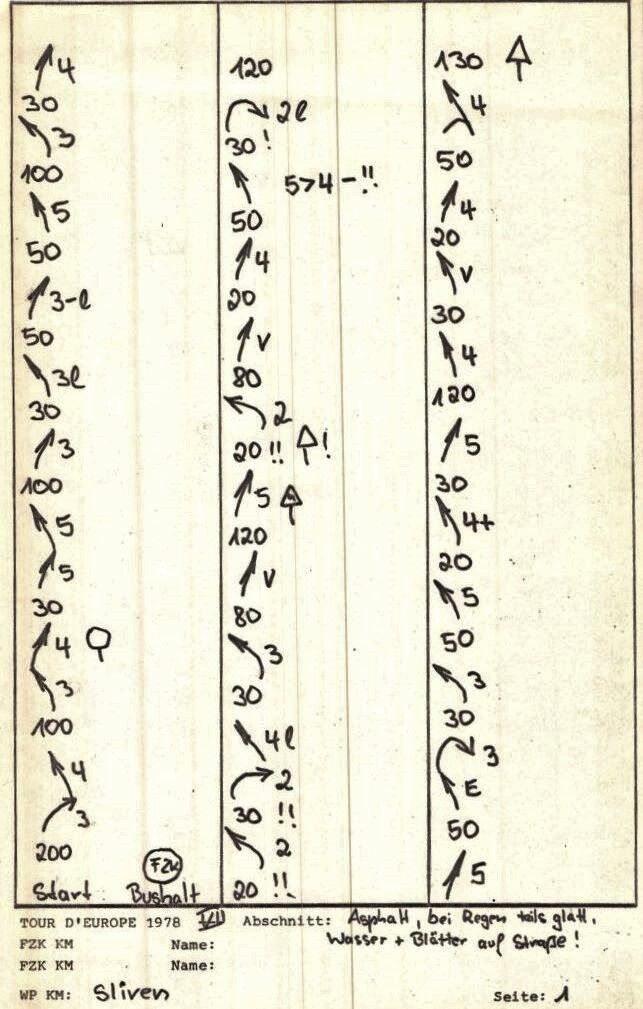 4
30
3
100
5
50
3-l
50
3l
30
3
100
5
5
30
4
3
100
4
3
200
FZK
Start Bushalt
120
2l
30 !
5>4 - !!
50
4
20
V
80
2
20 !! !
5
120
V
80
3
30
4l
2
30 !!
2
20 !!
130
4
50
4
20
V
30
4
120
5
30
4+
20
5
50
3
30
3
E
50
5
TOUR D'EUROPE 1978 VII Abschnitt: Asphalt, bei Regen teils glatt.
Wasser + Blätter auf Straße!
FZK KM Name:
FZK KM Name:
WP KM: Sliven Seite: 1